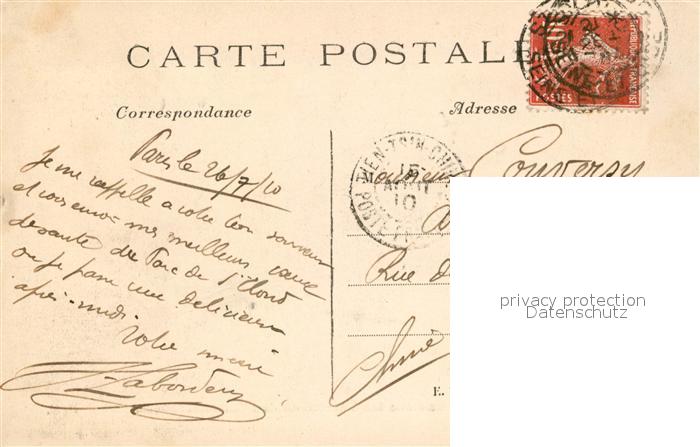 CARTE POSTALE
Correspondance
Adresse
POSTES
Paris le 26/7/10
Je me rappelle à votre bon souvenir
et vous envoie mes meilleurs
du Parc de St Cloud
où je passe une délicieuse
après-midi
Votre
Laborderie
TIEN-TSIN-CHINE
15
AOUT
10
Monsieur Conversy
Rue d
Chine
E.
privacy protection
Datenschutz